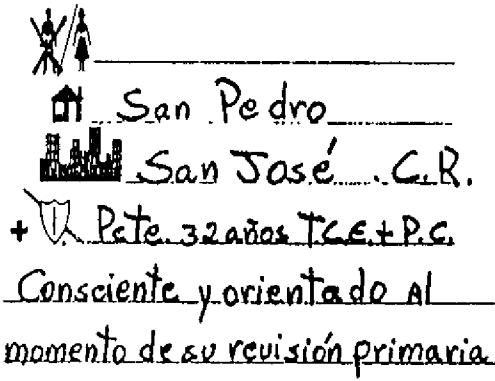 San Pedro
San José . C.R.
+ Pcte. 32 años T.C.E. + P.C.
Consciente y orientado Al
momento de su revisión primaria